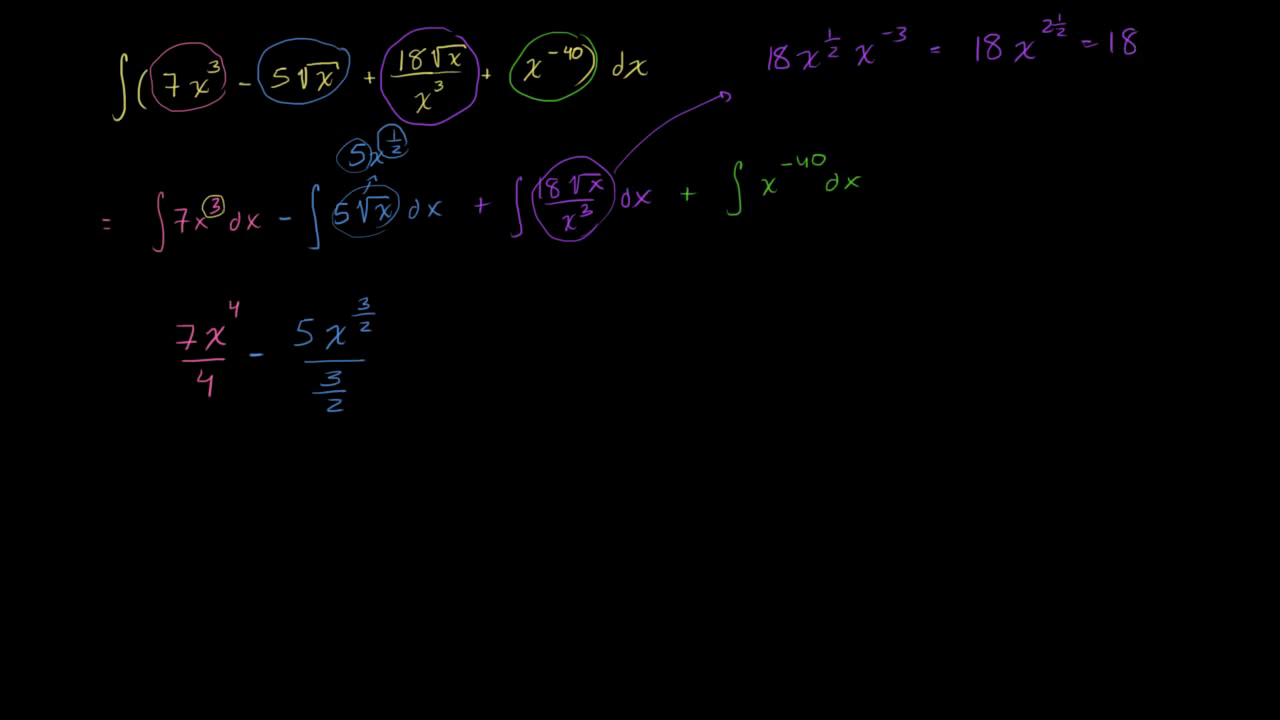 ∫(7x³ - 5√x + 18√x/x³ + x⁻⁴⁰) dx
18x^(1/2) x⁻³ = 18x^(2 1/2) = 18
5x^(1/2)
= ∫7x³dx - ∫5√x dx + ∫18√x/x³ dx + ∫x⁻⁴⁰dx
7x⁴/4 - 5x^(3/2)/(3/2)